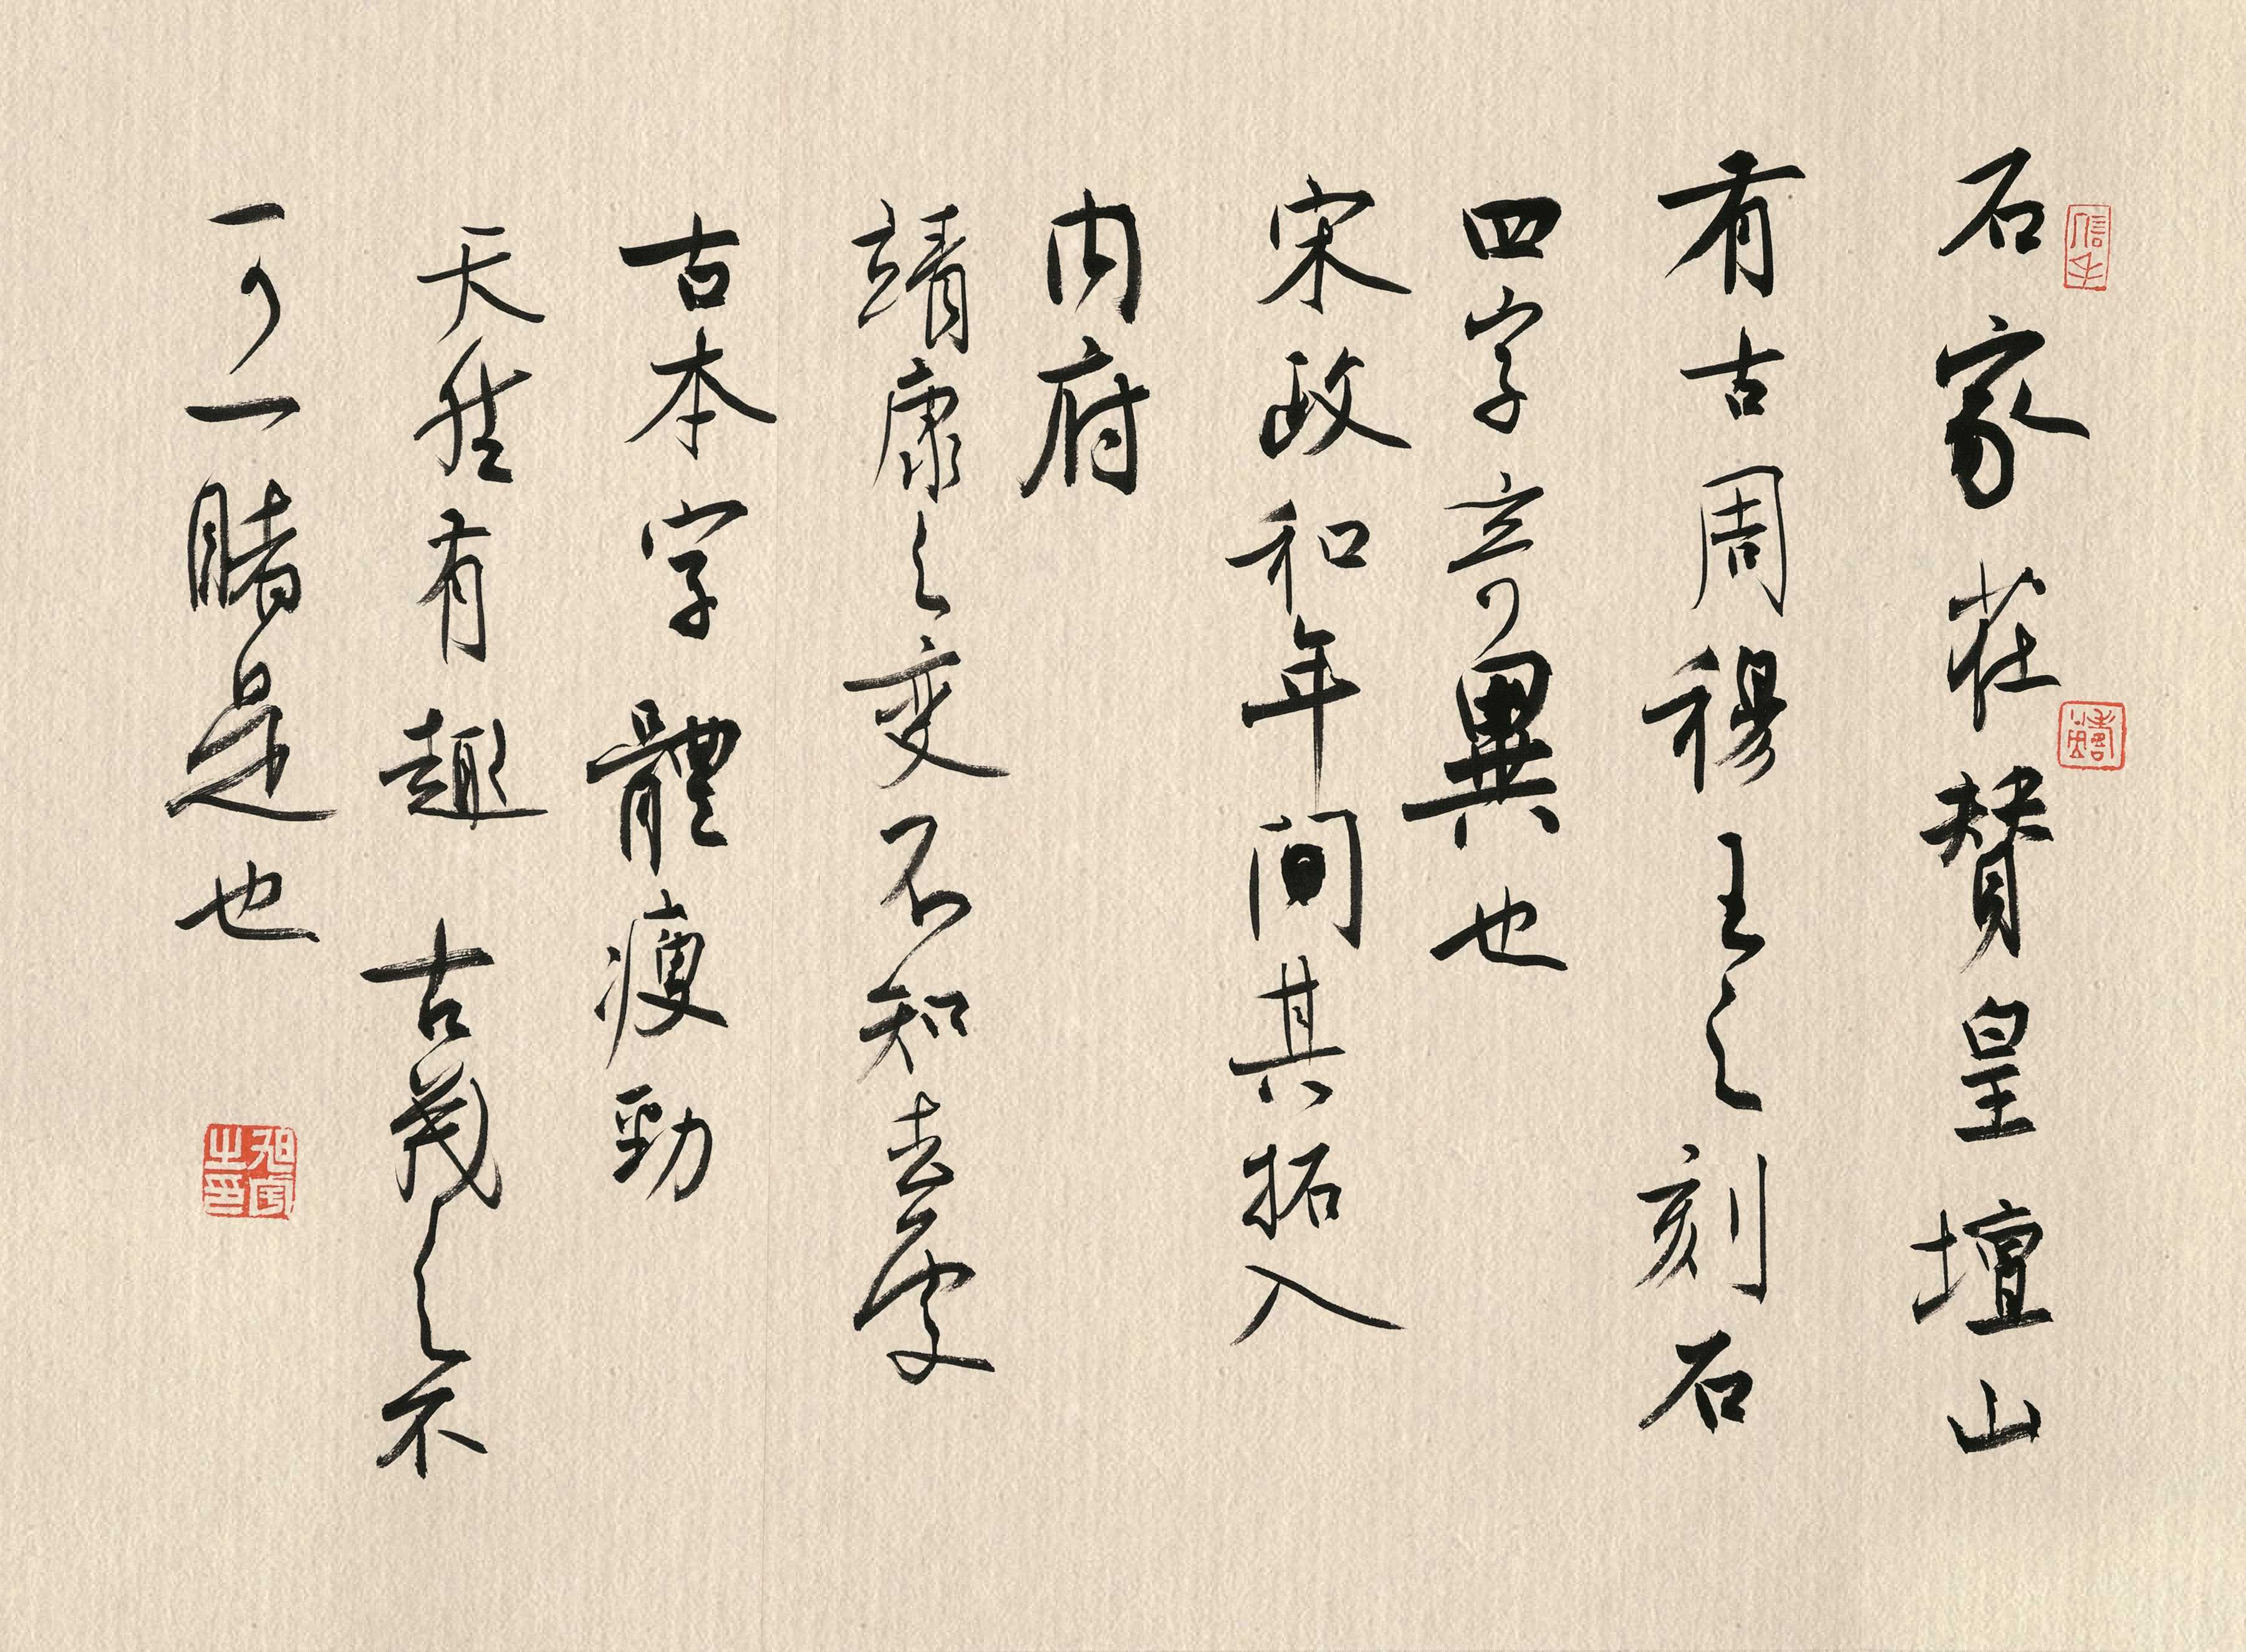 石家莊赞皇壇山
有古周穆王之刻石
四字竒異也
宋政和年间其拓入
内府
靖康之变不知去处
古本字體瘦勁
天然有趣古茂之不
可一睹是也
信手
之印